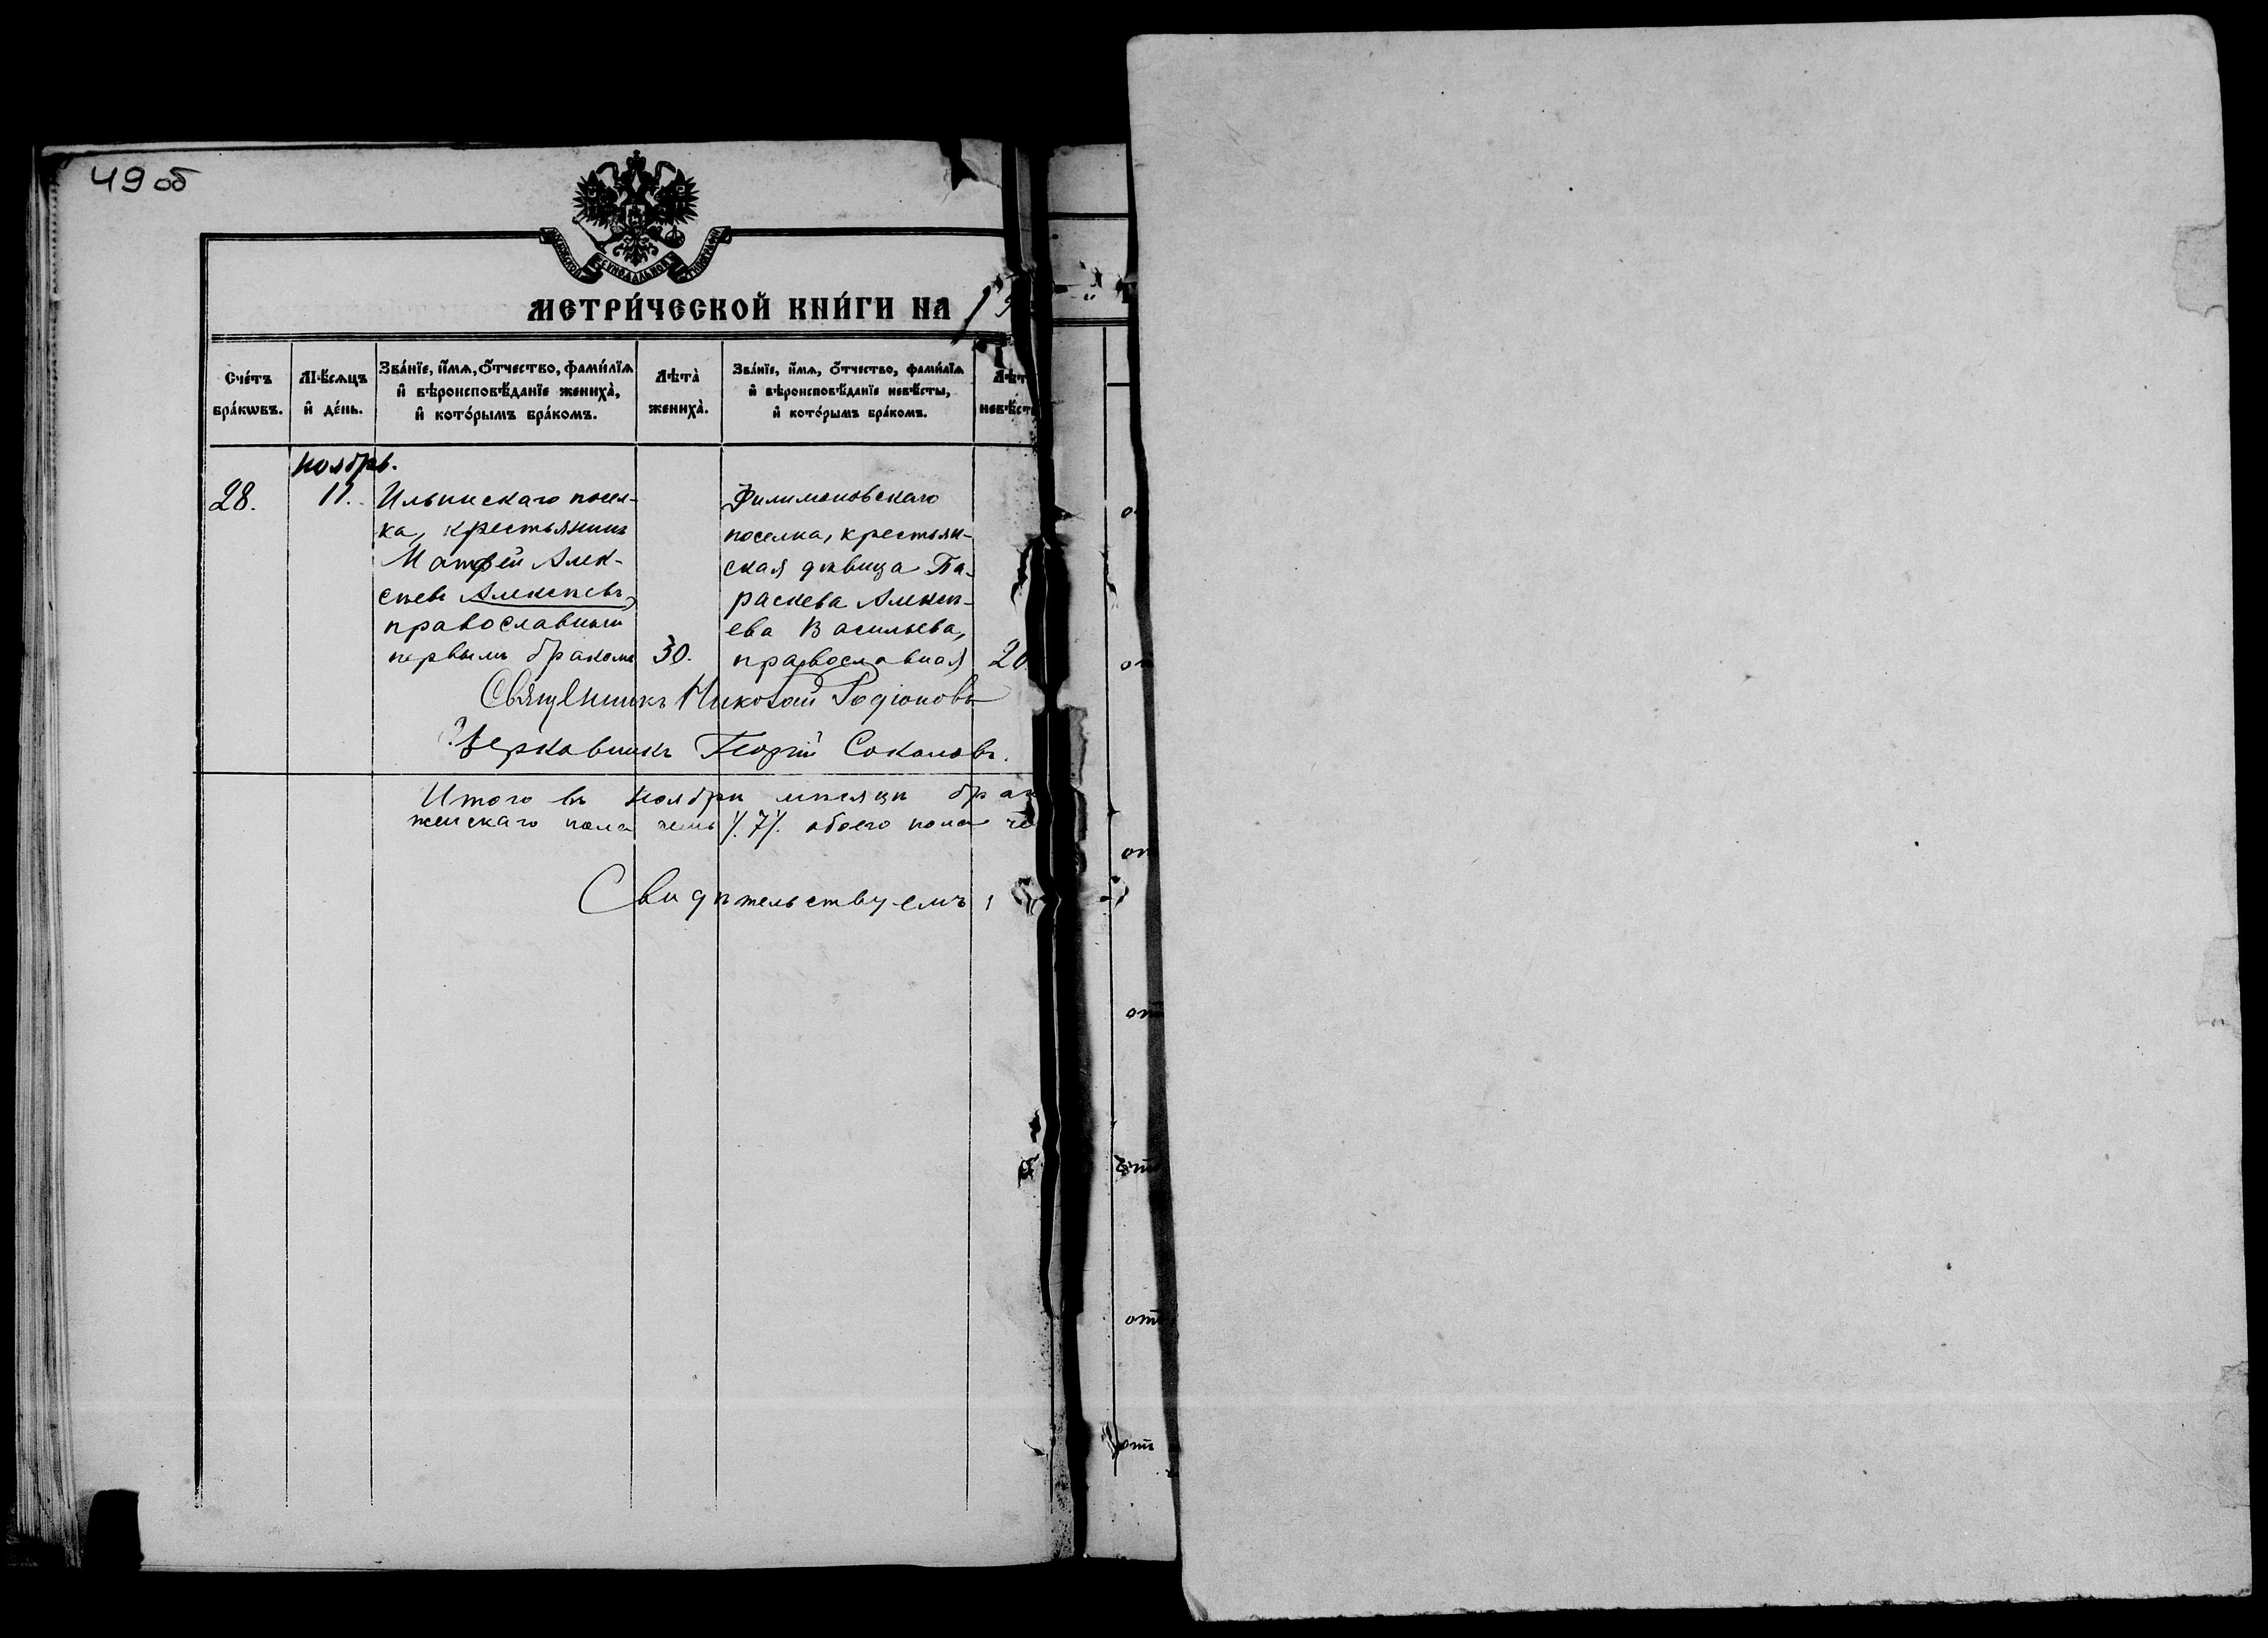 49 об
МОСКОВСКОЙ СУНОДАЛЬНОЙ ТИПОГРАФІИ
МЕТРИ́ЧЕСКОЙ КНИ́ГИ НА 19
Сче́тъ бра́кωвъ.
Мѣ́сѧцъ и҆ де́нь.
Зва́нїе, и҆́мѧ, ѻ҆́тчество, фами́лїѧ и҆ вѣроисповѣ́данїе жениха̀, и҆ кото́рымъ бра́комъ.
Лѣта̀ жениха̀.
Зва́нїе, и҆́мѧ, ѻ҆́тчество, фами́лїѧ и҆ вѣроисповѣ́данїе невѣ́сты, и҆ кото́рымъ бра́комъ.
Лѣт
невѣ́ст
Ноябрь.
28.
11.
Ильинскаго посел-
ка, крестьянинъ
Матѳей Алек-
сѣевъ Алексѣевъ,
православный
первымъ бракомъ
30.
Филимоновскаго
поселка, крестьян-
ская дѣвица Па-
раскева Алексѣ-
ева Васильева,
православная
20.
Священникъ Николай Родіоновъ
Церковникъ Георгій Соколовъ.
Итого въ Ноябрѣ мѣсяцѣ брак
женскаго пола семь /.7/. обоего пола че
Свидѣтельствуемъ,
от
от
от
от
от